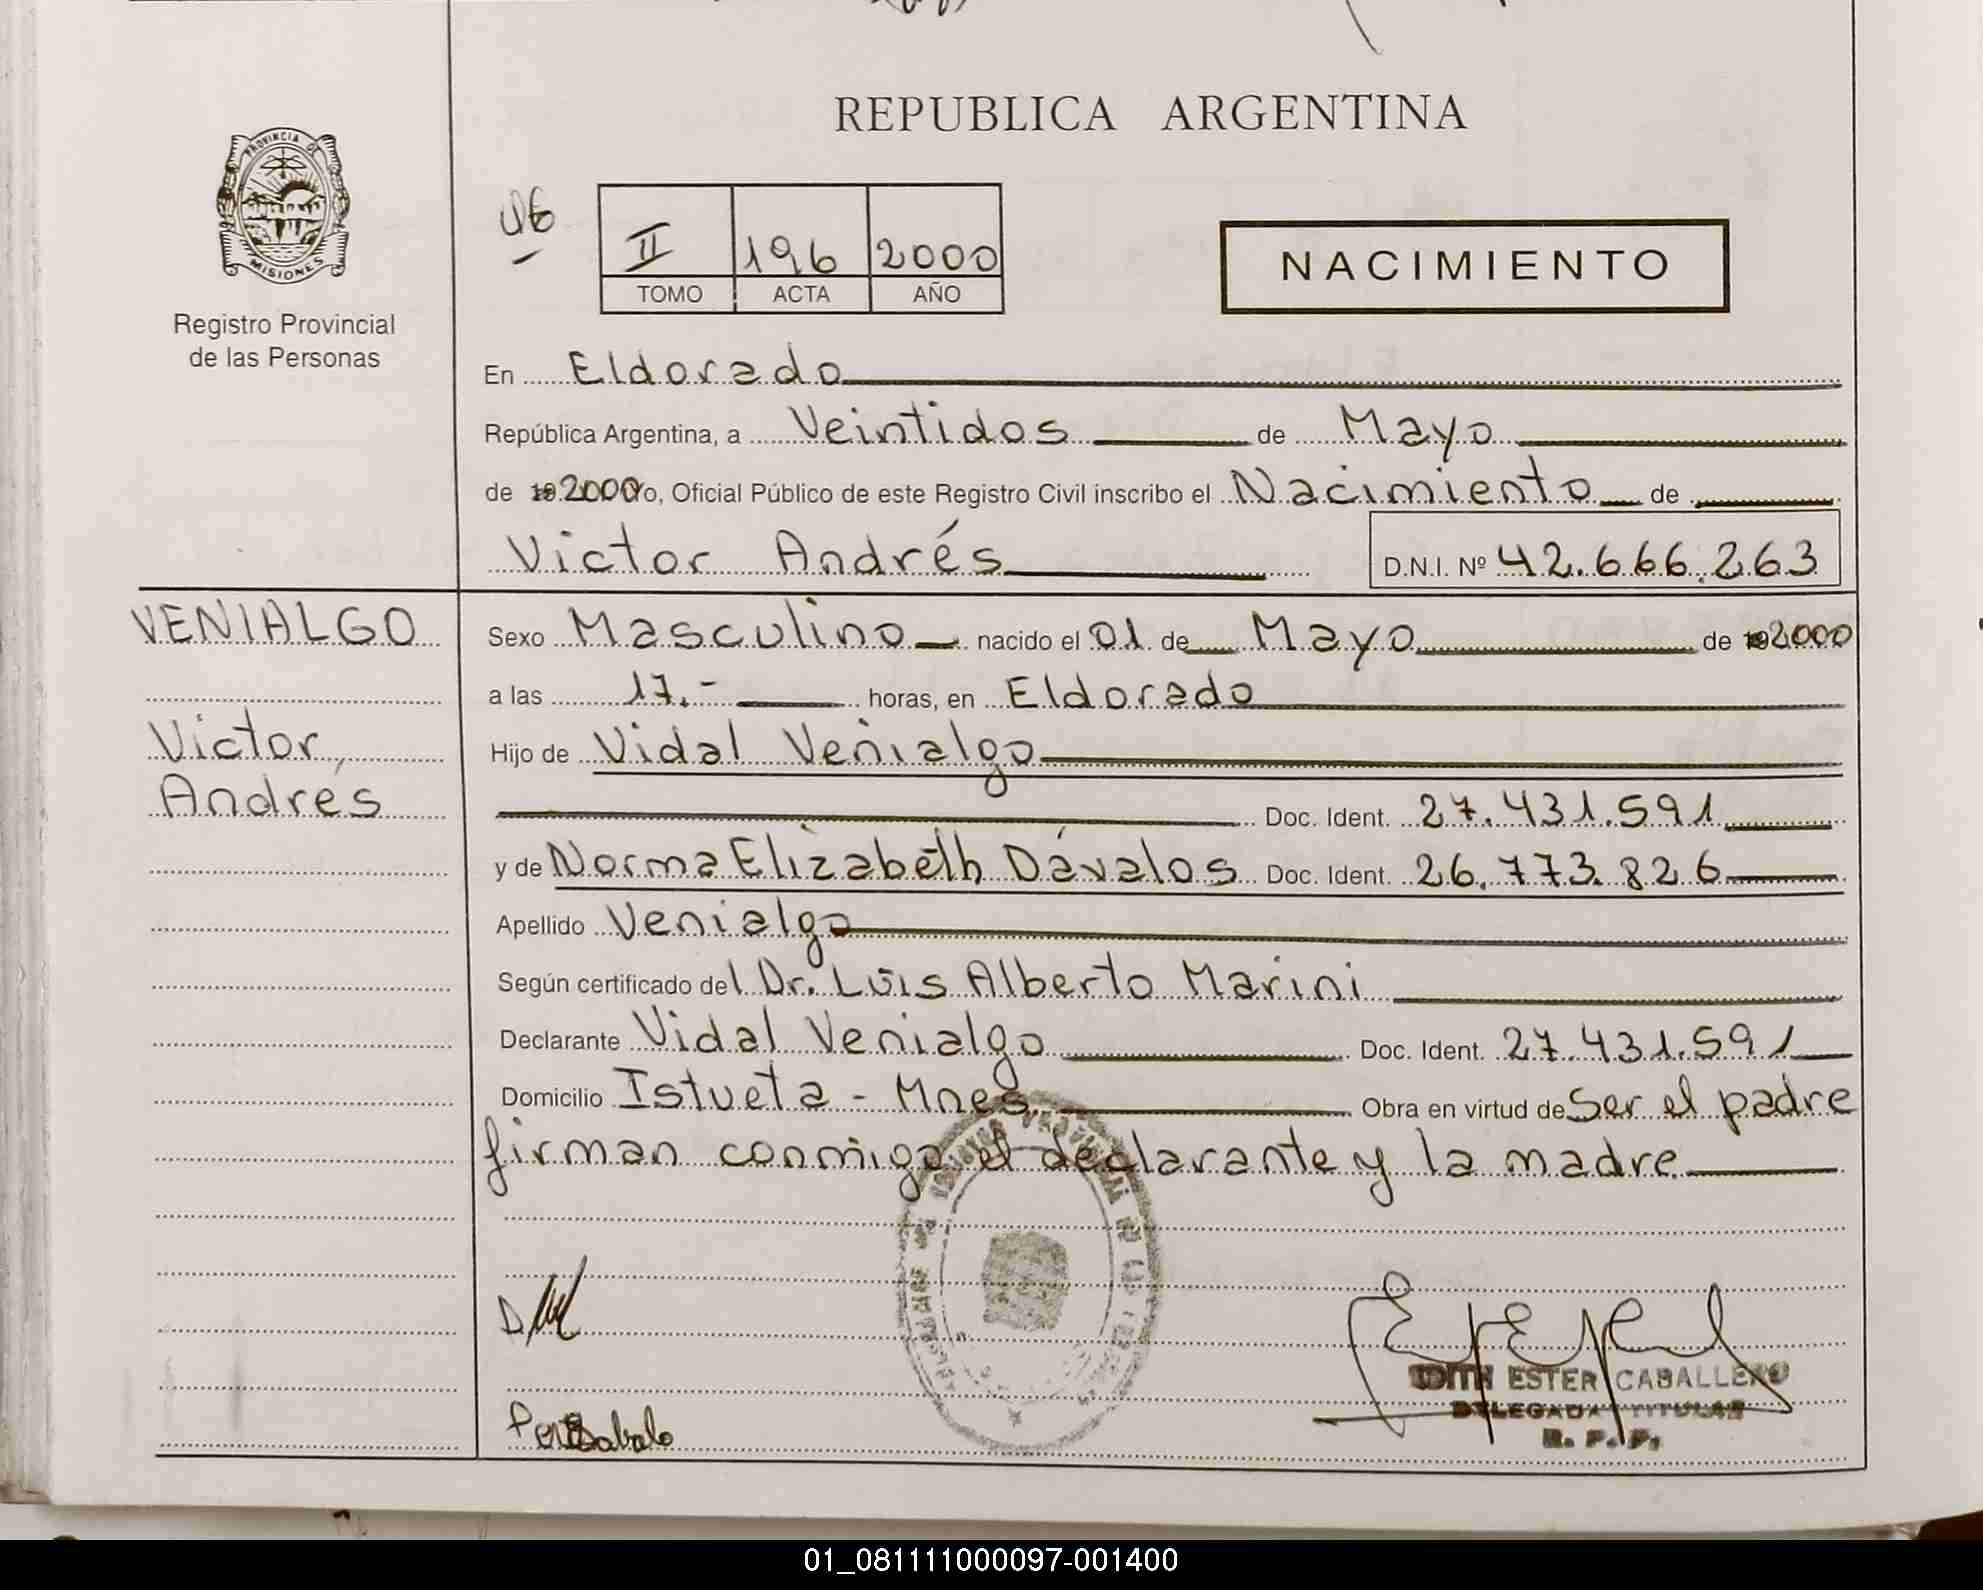 REPUBLICA ARGENTINA
PROVINCIA DE
MISIONES
Registro Provincial
de las Personas
II 196 2000
TOMO ACTA AÑO
NACIMIENTO
En Eldorado
República Argentina, a Veintidos de Mayo
de 19 2000 Yo, Oficial Público de este Registro Civil inscribo el Nacimiento de
Victor Andrés D.N.I. Nº 42.666.263
VENIALGO
Victor
Andrés
Sexo Masculino nacido el 01 de Mayo de 19 2000
a las 17.- horas, en Eldorado
Hijo de Vidal Venialgo
Doc. Ident. 27.431.591
y de Norma Elizabeth Dávalos Doc. Ident. 26.773.826
Apellido Venialgo
Según certificado del Dr. Luis Alberto Marini
Declarante Vidal Venialgo Doc. Ident. 27.431.591
Domicilio Istueta - Mnes Obra en virtud de Ser el padre
firman conmigo el declarante y la madre
EDITH ESTER CABALLERO
DELEGADA TITULAR
R. P. P.
01_081111000097-001400